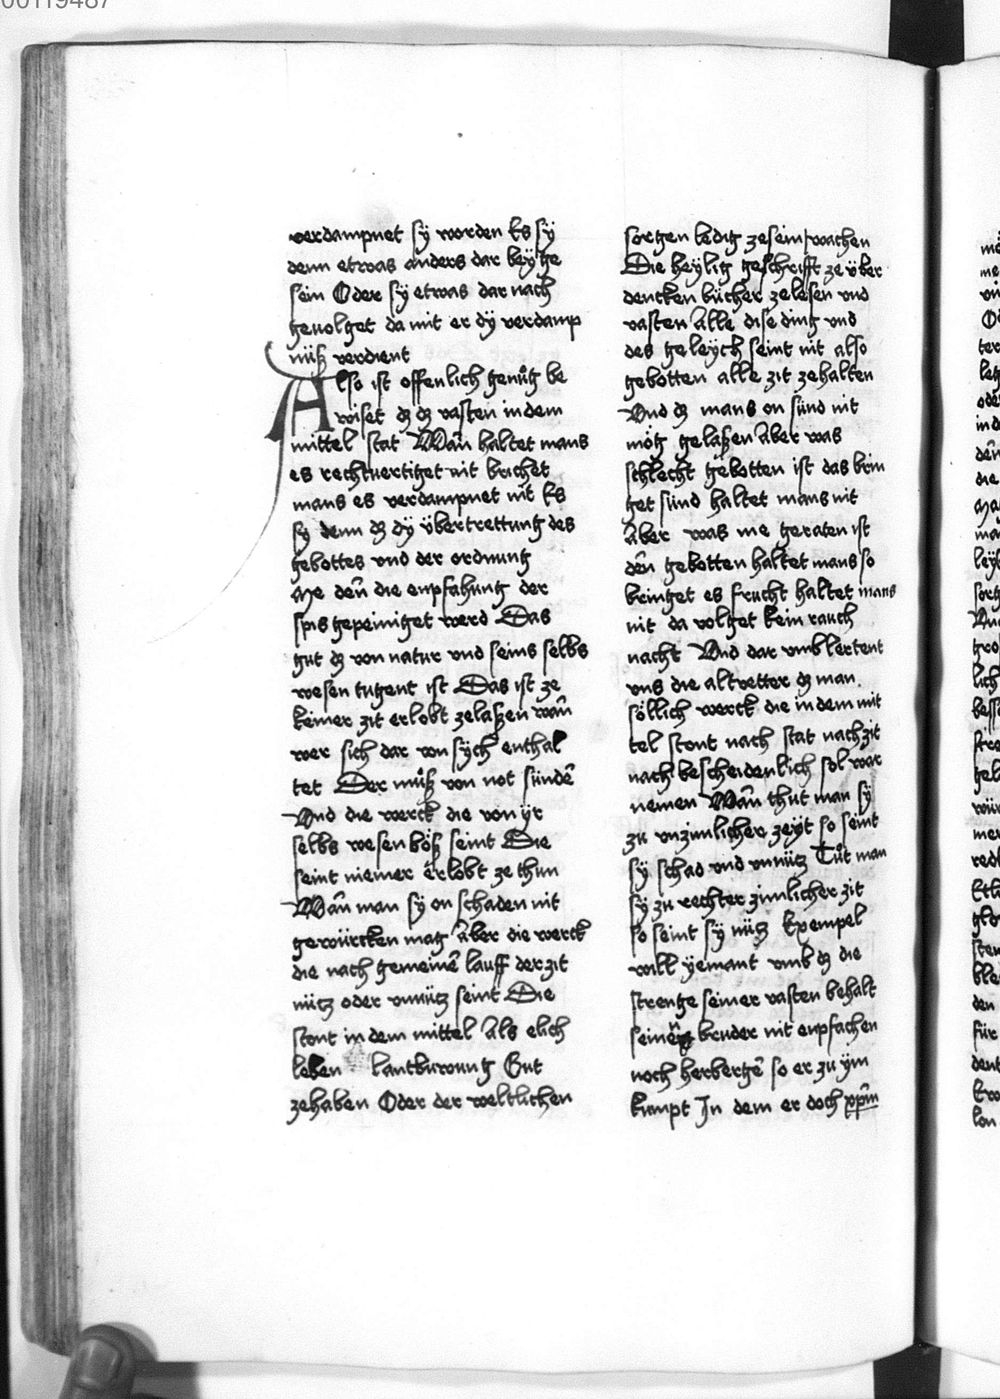 00119487
verdampnet sÿ worden Es sÿ
denn etwas anders dar beÿ ge
sein Oder sÿ etwas dar nach
geuolget da mit er dÿ verdamp
nüß verdient
Also ist offenlich genůg be
wiset dz dz vasten in dem
mittel stat Wān haltet mans
es rechtuertiget nit brichet
mans es verdampnet nit Es
sÿ denn dz dÿ übertrettung des
gebottes vnd der ordnung
Me dēn die enpfahung der
spis gepeiniget werd Das
gut dz von natur vnd seins selbs
wesen tugent ist Das ist ze
keiner zit erlobt zelaßen wān
wer sich dar von sÿch enthal
tet Der můß von not sündē
Vnd die werck die von ÿr
selbs wesen böß seint Die
seint niemer erlobt ze thun
Wān man sÿ on schaden nit
gewürcken mag aber die werck
die nach gemeinē lauff der zit
nütz oder vnnütz seint Die
stont in dem mittel Als elich
leben lantbuwung Gut
zehaben Oder der weltlichen
sorgen ledig zesein wachen
Die heÿlig geschrifft ze über
dencken bücher zelesen vnd
vasten Alle dise ding vnd
des geleÿch seint nit also
gebotten alle zit zehalten
Vnd dz mans on sünd nit
mög gelaßen Aber was
schlecht gebotten ist das brin
get sünd haltet mans nit
Aber was me geraten ist
dēn gebotten haltet mans so
bringet es frucht haltet mans
nit da volget kein rauch
nacht Vnd dar vmb lertent
vns die altvetter dz man
söllich werck die in dem mit
tel stont nach stat nach zit
nach bescheidenlich sol war
nemen Wān thut man sÿ
zu vnzimlicher zeÿt so seint
sÿ schad vnd vnnütz Tůt man
sÿ zu rechter zimlicher zit
so seint sÿ nütz Exempel
will ÿemant vmb dz die
strenge seiner vasten behalt
seinen bruder nit enpfachen
noch herbergē so er zu ÿm
kumpt In dem er doch xp̄m